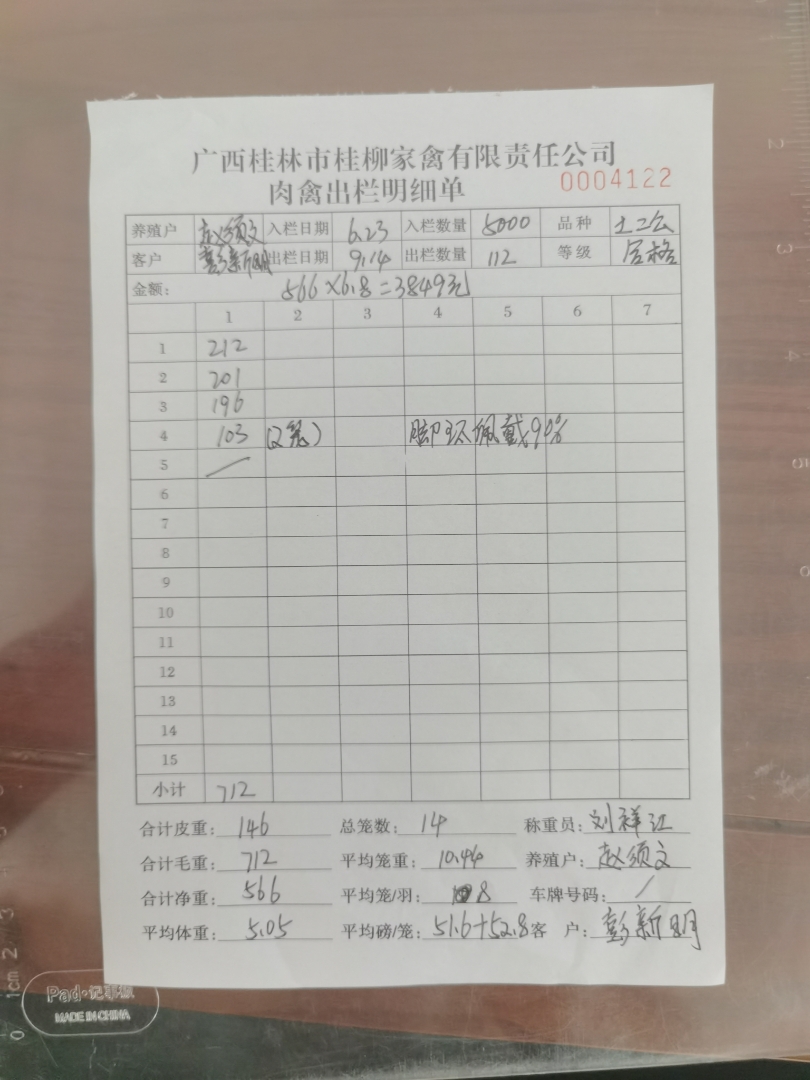 广西桂林市桂柳家禽有限责任公司
肉禽出栏明细单 0004122
养殖户 赵须文 入栏日期 6.23 入栏数量 5000 品种 土二公
客户 彭新明 出栏日期 9.14 出栏数量 112 等级 合格
金额: 566×6.8=3849元
1 2 3 4 5 6 7
1 212
2 201
3 196
4 103 (2笼) 脚环佩戴90%
5 /
6
7
8
9
10
11
12
13
14
15
小计 712
合计皮重: 146 总笼数: 14 称重员: 刘祥江
合计毛重: 712 平均笼重: 10.44 养殖户: 赵须文
合计净重: 566 平均笼/羽: 8 车牌号码: /
平均体重: 5.05 平均磅/笼: 51.6+52.8 客 户: 彭新明
Pad·记事板
MADE IN CHINA
0 1cm 2 3
2
3
4
5
6